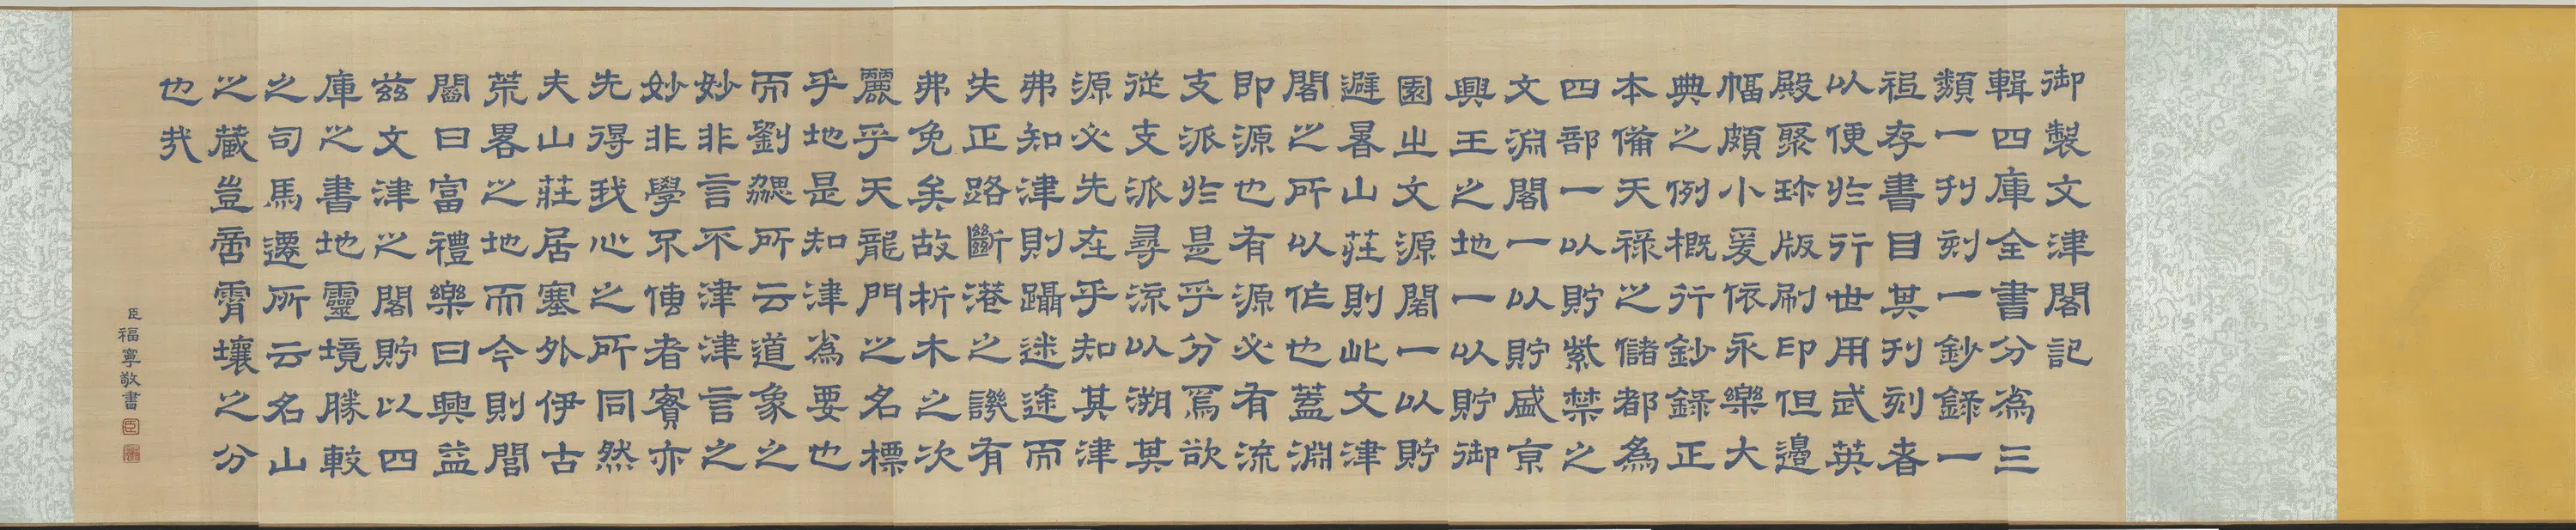 御製文津閣記
輯四庫全書分為三
類一刊刻一鈔錄一
袓存書目其刊刻者
以便於行世用武英
殿聚珍版刷印但邊
幅頗小爰依永樂大
典之例概行鈔錄正
本備天祿之儲都為
四部一以貯紫禁之
文淵閣一以貯盛京
興王之地一以貯御
園之文源閣一以貯
避暑山莊則此文津
閣之所以作也蓋淵
即源也有源必有流
支派於是乎分焉欲
從支派尋流以溯其
源必先在乎知其津
弗知津則躡迷途而
失正路斷港之譏有
弗免矣故析木之次
麗乎天龍門之名標
乎地是知津為要也
而劉勰所云道象之
妙非言不津津言之
妙非學不傳者實亦
先得我心之所同然
夫山莊居塞外伊古
荒畧之地而今則閭
閻曰富禮樂曰興益
茲文津之閣貯以四
庫之書地靈境勝較
之司馬遷所云名山
之藏豈啻霄壤之分
也哉
臣福寧敬書